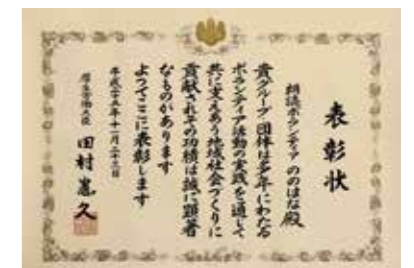 表彰状
朗読ボランティア ののはな殿
貴グループ・団体は多年にわたる
ボランティア活動の実践を通して
共に支えあう地域社会づくりに
貢献されその功績は誠に顕著
なものがあります
よってここに表彰します
平成二十五年十一月二十二日
厚生労働大臣 田村憲久